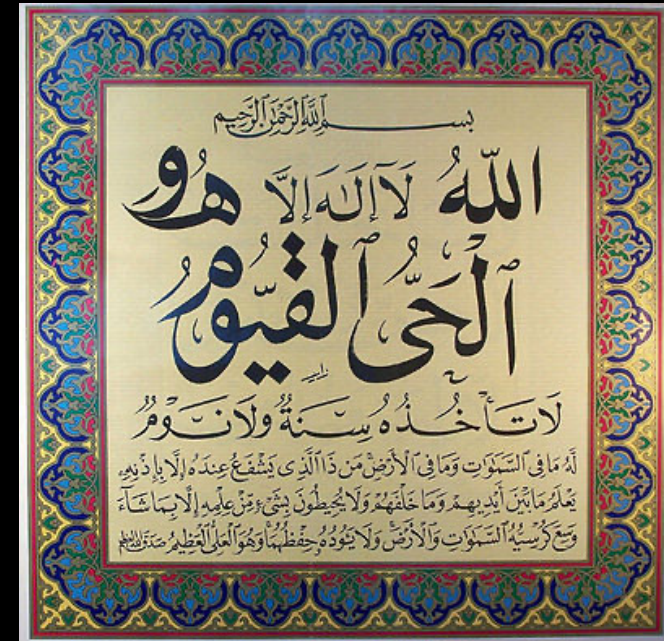 بسم الله الرحمن الرحيم
اللّٰهُ لَآ اِلٰهَ اِلَّا هُوَ
اَلْحَيُّ الْقَيُّومُ
لَا تَأْخُذُهُ سِنَةٌ وَلَا نَوْمٌ
لَهُ مَا فِي السَّمٰوَاتِ وَمَا فِي الْأَرْضِ مَن ذَا الَّذِي يَشْفَعُ عِندَهُ إِلَّا بِإِذْنِهِ
يَعْلَمُ مَا بَيْنَ أَيْدِيهِمْ وَمَا خَلْفَهُمْ وَلَا يُحِيطُونَ بِشَيْءٍ مِّنْ عِلْمِهِ إِلَّا بِمَا شَاءَ
وَسِعَ كُرْسِيُّهُ السَّمٰوَاتِ وَالْأَرْضَ وَلَا يَئُودُهُ حِفْظُهُمَا وَهُوَ الْعَلِيُّ الْعَظِيمُ